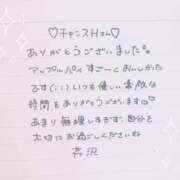 ♡チャンスHさん♡
ありがとうございました°。
アップルパイすごーくおいしかった
です(:‎ :)いつも優しい素敵な
時間をありがとうございます
あまり無理しすぎず自分を
大切にお過ごしくださいね
芹沢